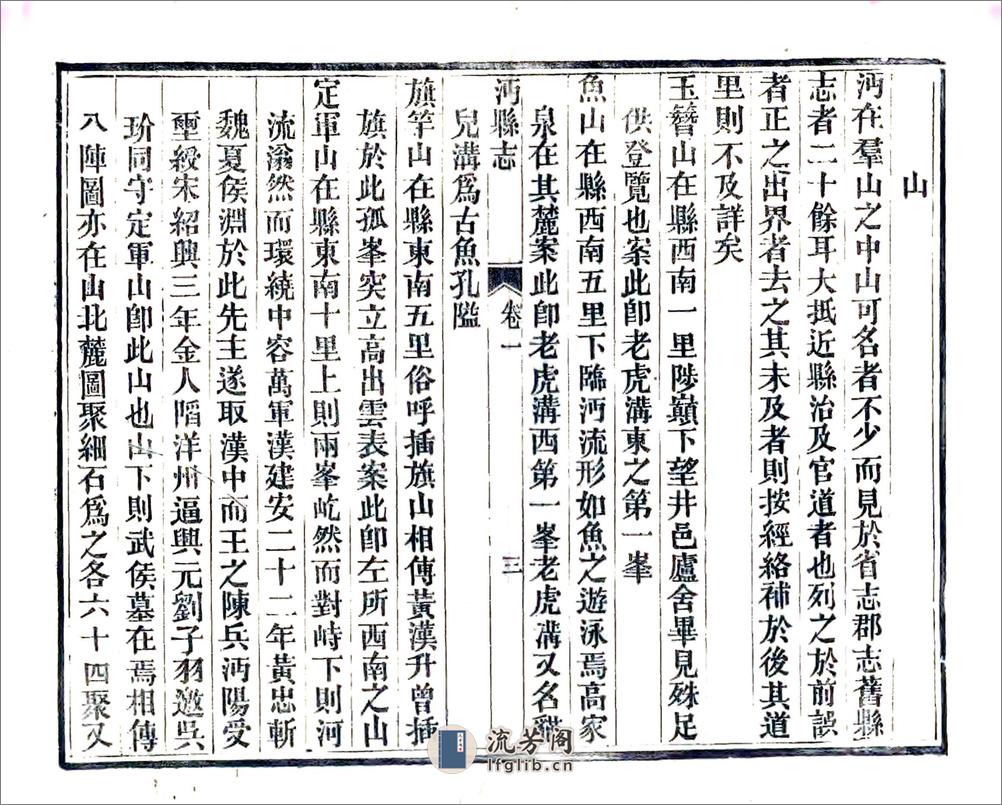 山
沔在羣山之中山可名者不少而見於省志郡志舊縣
志者二十餘耳大抵近縣治及官道者也列之於前誤
者正之出界者去之其未及者則按經絡補於後其道
里則不及詳矣
玉簪山在縣西南一里陟巔下望井邑廬舍畢見殊足
供登覽也案此卽老虎溝東之第一峯
魚山在縣西南五里下臨沔流形如魚之遊泳焉高家
泉在其麓案此卽老虎溝西第一峯老虎溝又名貓
沔縣志 卷一 三
兒溝爲古魚孔隘
旗竿山在縣東南五里俗呼插旗山相傳黃漢升曾插
旗於此孤峯突立高出雲表案此卽左所西南之山
定軍山在縣東南十里上則兩峯屹然而對峙下則河
流滃然而環繞中容萬軍漢建安二十二年黃忠斬
魏夏侯淵於此先主遂取漢中而王之陳兵沔陽受
璽綬宋紹興三年金人陷洋州逼興元劉子羽邀吳
玠同守定軍山卽此山也山下則武侯墓在焉相傳
八陣圖亦在山北麓圖聚細石爲之各六十四聚又
流芳阁
lfglib.cn